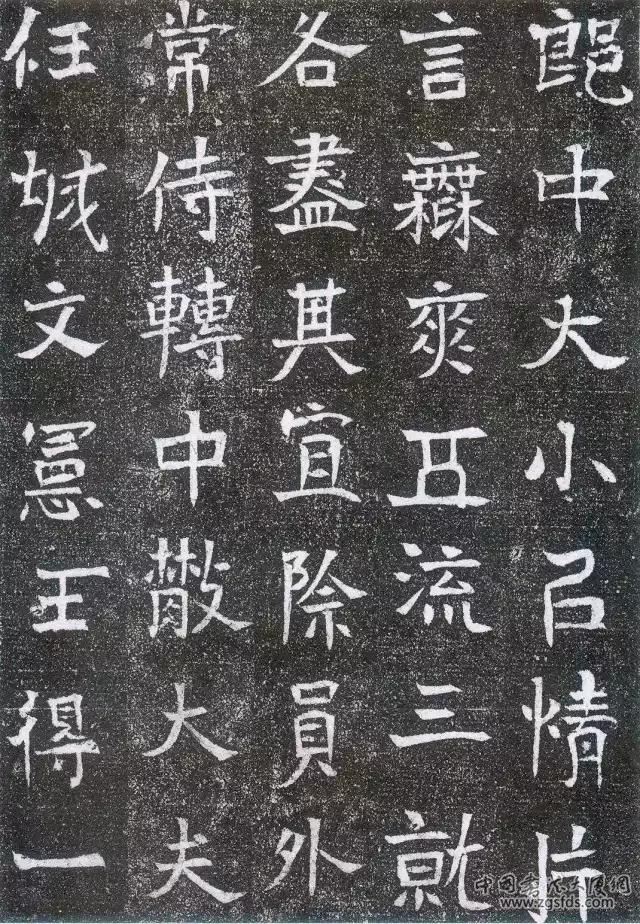 郎中大小以情片
言無爽五流三就
各盡其宜除員外
常侍轉中散大夫
任城文宣王得一
www.zgsfds.com